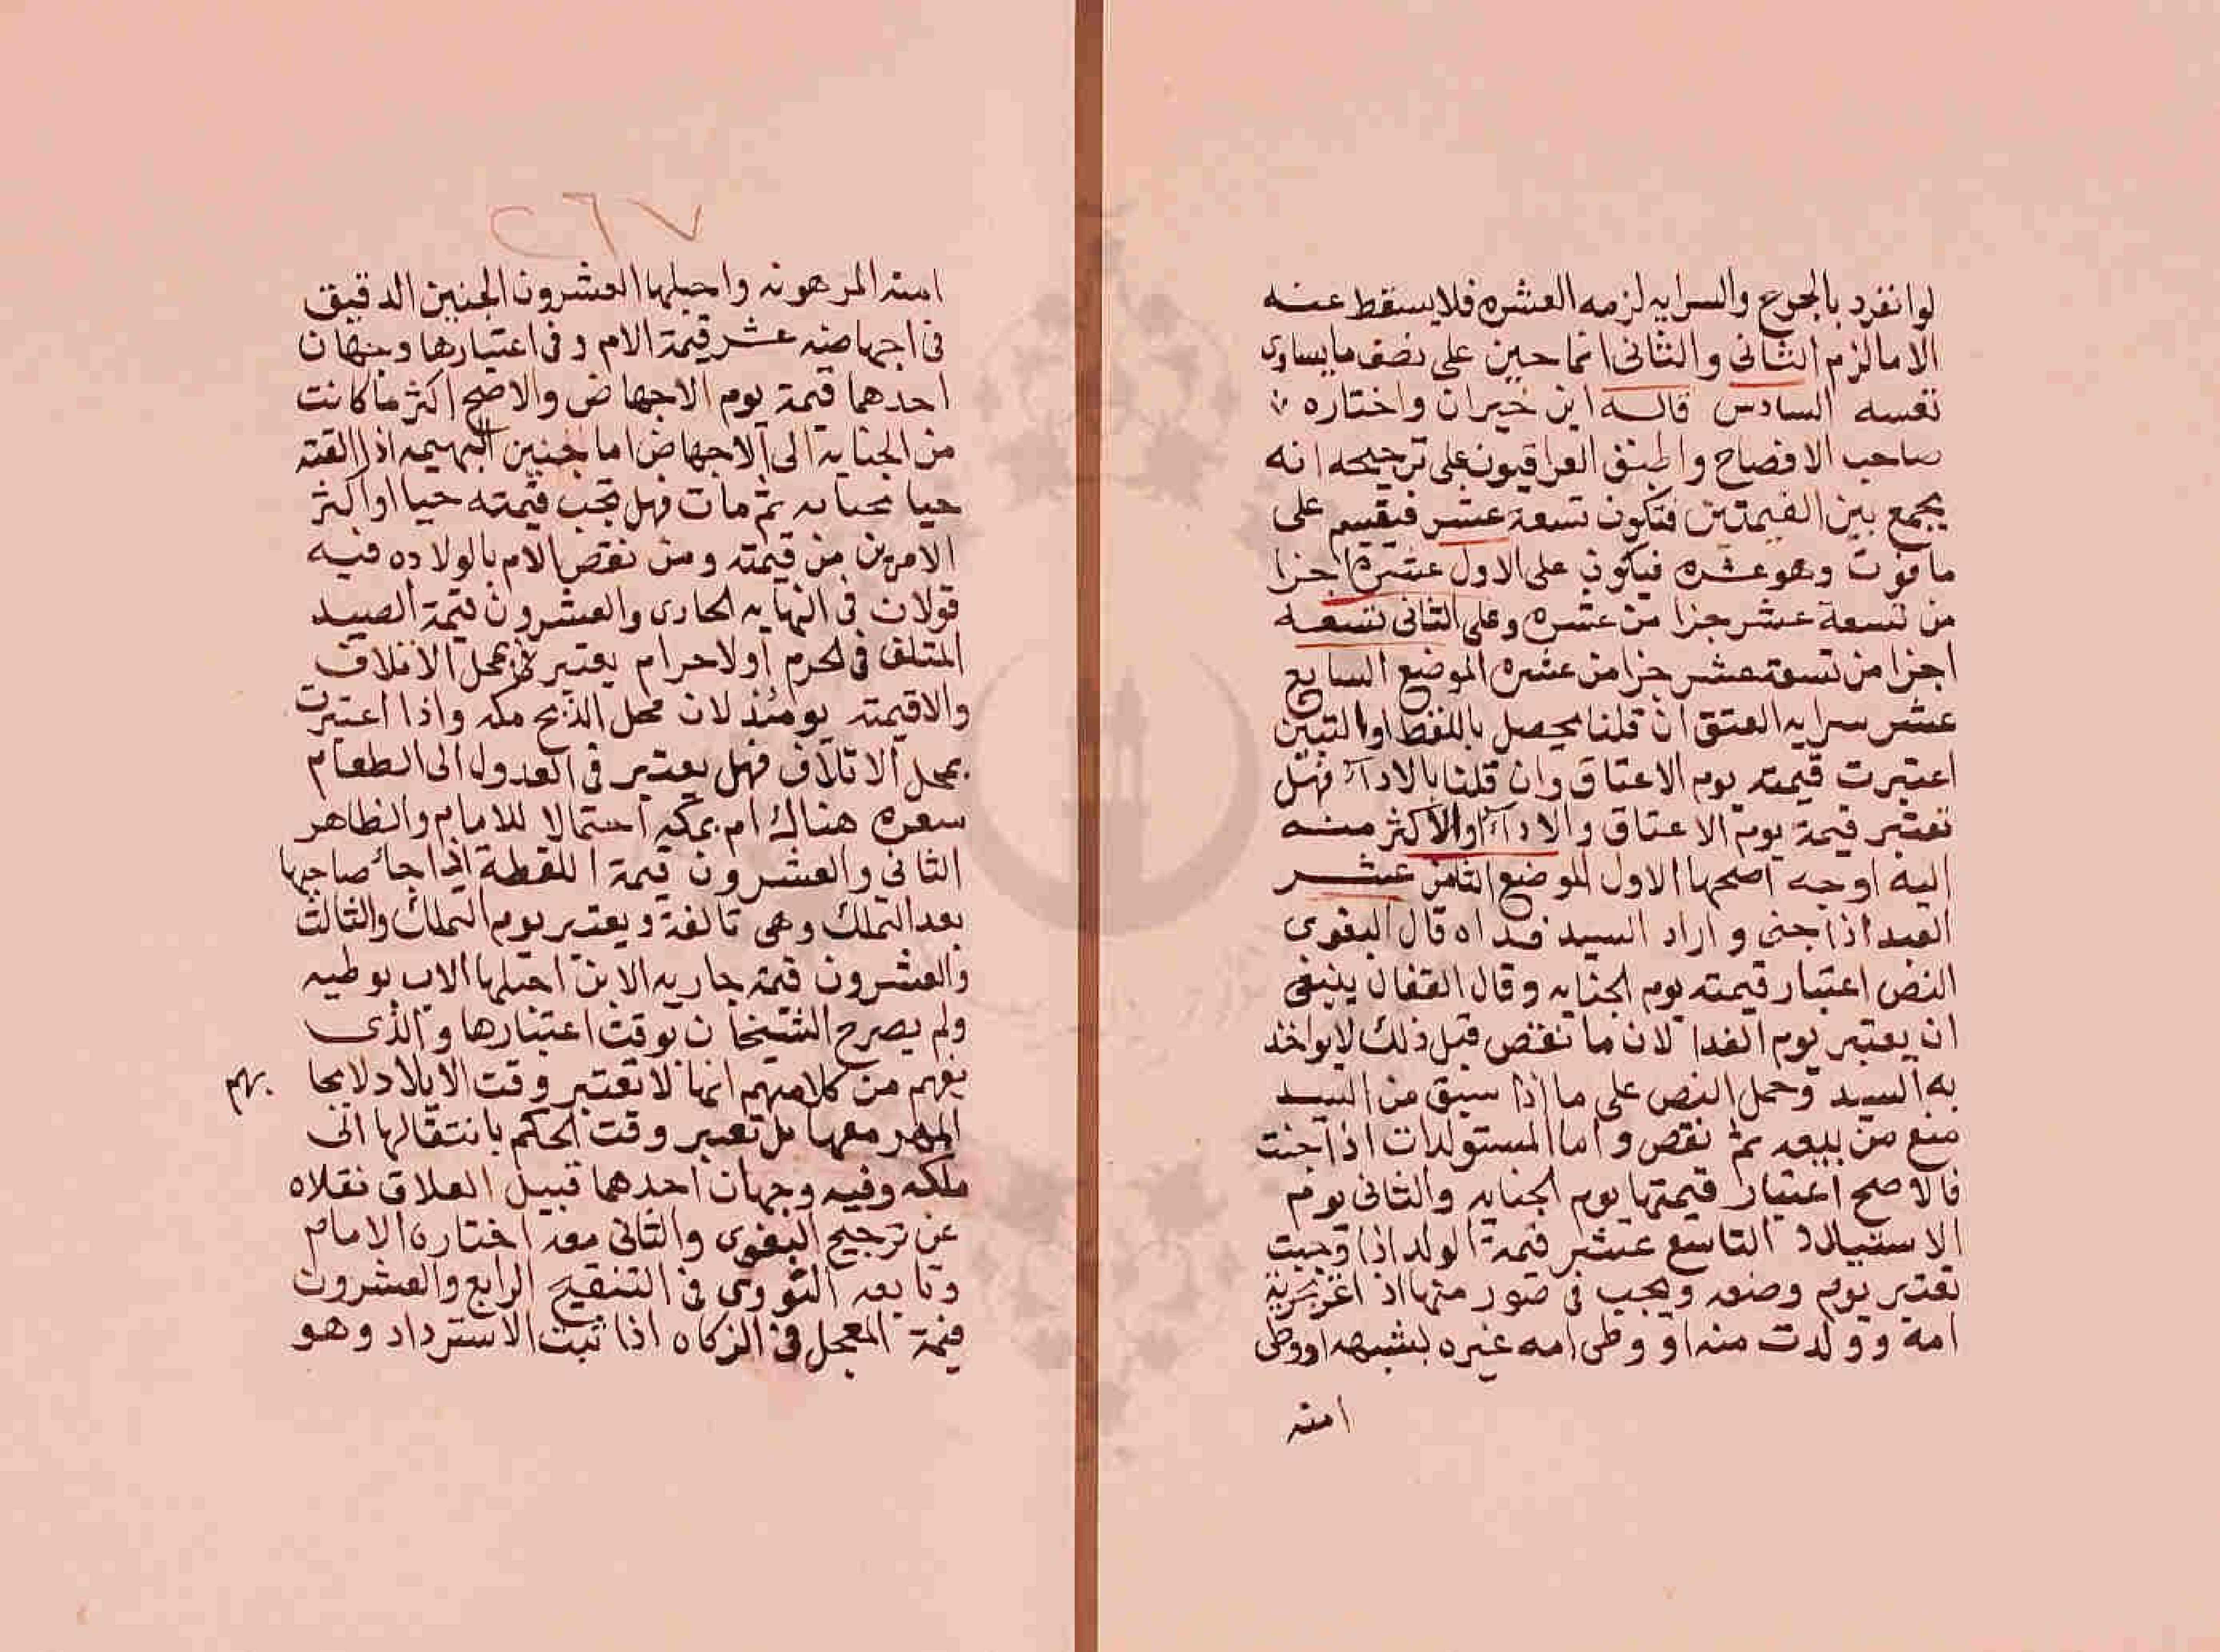 لو انفرد بالجرح والسرايه لزمه العشره فلا يسقط عنه
الا ما لزم الثاني والثاني انما حين على نصف ما يساوى
نفسه السادس قاله ابن خيران واختاره
صاحب الافصاح واطبق العراقيون على ترجيحه انه
يجمع بين القيمتين فتكون تسعة عشر فيقسم على
ما فوت وهو عشره فيكون على الاول عشرة اجزا
من تسعة عشر جزا من عشره وعلى الثاني تسعه
اجزا من تسعة عشر جزا من عشره الموضع السابع
عشر سرايه العتق ان قلنا يحصل باللفظ او التبين
اعتبرت قيمته يوم الاعتاق وان قلنا بالادآء فهل
تعتبر قيمة يوم الاعتاق والادآء او الاكثر منه
اليه اوجه اصحها الاول الموضع الثامن عشر
العبد اذا جنى واراد السيد فداه قال البغوى
النص اعتبار قيمته يوم الجنايه وقال القفال ينبغى
ان يعتبر يوم الفدا لان ما نقص قبل ذلك لا يواخذ
به السيد وحمل النص على ما اذا سبق من السيد
منع من بيعه ثم نقص واما المستولدات اذا جنت
فالاصح اعتبار قيمتها يوم الجنايه والثاني يوم
الاستيلاد التاسع عشر قيمة الولد اذا وجبت
تعتبر يوم وضعه ويجب في صور منها اذا غر بحرية
امة وولدت منه او وطى امه غيره بشبهه او وطى
امته
٢٦٧
امته المرهونه واحبلها العشرون الجنين الدقيق
في اجهاضه عشر قيمة الام وفي اعتبارها وجهان
احدهما قيمة يوم الاجهاض والاصح اكثر ما كانت
من الجنايه الى الاجهاض اما جنين البهيمه اذا القته
حيا بجنايه ثم مات فهل تجب قيمته حيا او اكثر
الامرين من قيمته ومن نقص الام بالولاده فيه
قولان في النهايه الحادى والعشرون قيمة الصيد
المتلف في الحرم او لاحرام يعتبر بمحل الاتلاف
والا قيمته يومئذ لان محل الذبح مكه واذا اعتبرت
بمحل الاتلاف فهل يعتبر في العدول الى الطعام
سعره هناك ام بمكه احتمالا للامام والظاهر
الثاني والعشرون قيمة اللقطة اذا جاء صاحبها
بعد التملك وهى تالفة ويعتبر يوم التملك والثالث
والعشرون قيمة جاريه الابن احبلها الاب بوطيه
ولم يصرح الشيخان بوقت اعتبارها والذى
يفهم من كلامهم انها لا تعتبر وقت الايلاد لايجا
بهم
المهر معها بل تعتبر وقت الحكم بانتقالها الى
ملكه وفيه وجهان احدهما قبيل العلاق نقلاه
عن ترجيح البغوى والثاني معه اختاره الامام
وتابعه النووى في التنقيح الرابع والعشرون
قيمة المعجل في الزكاه اذا ثبت الاسترداد وهو